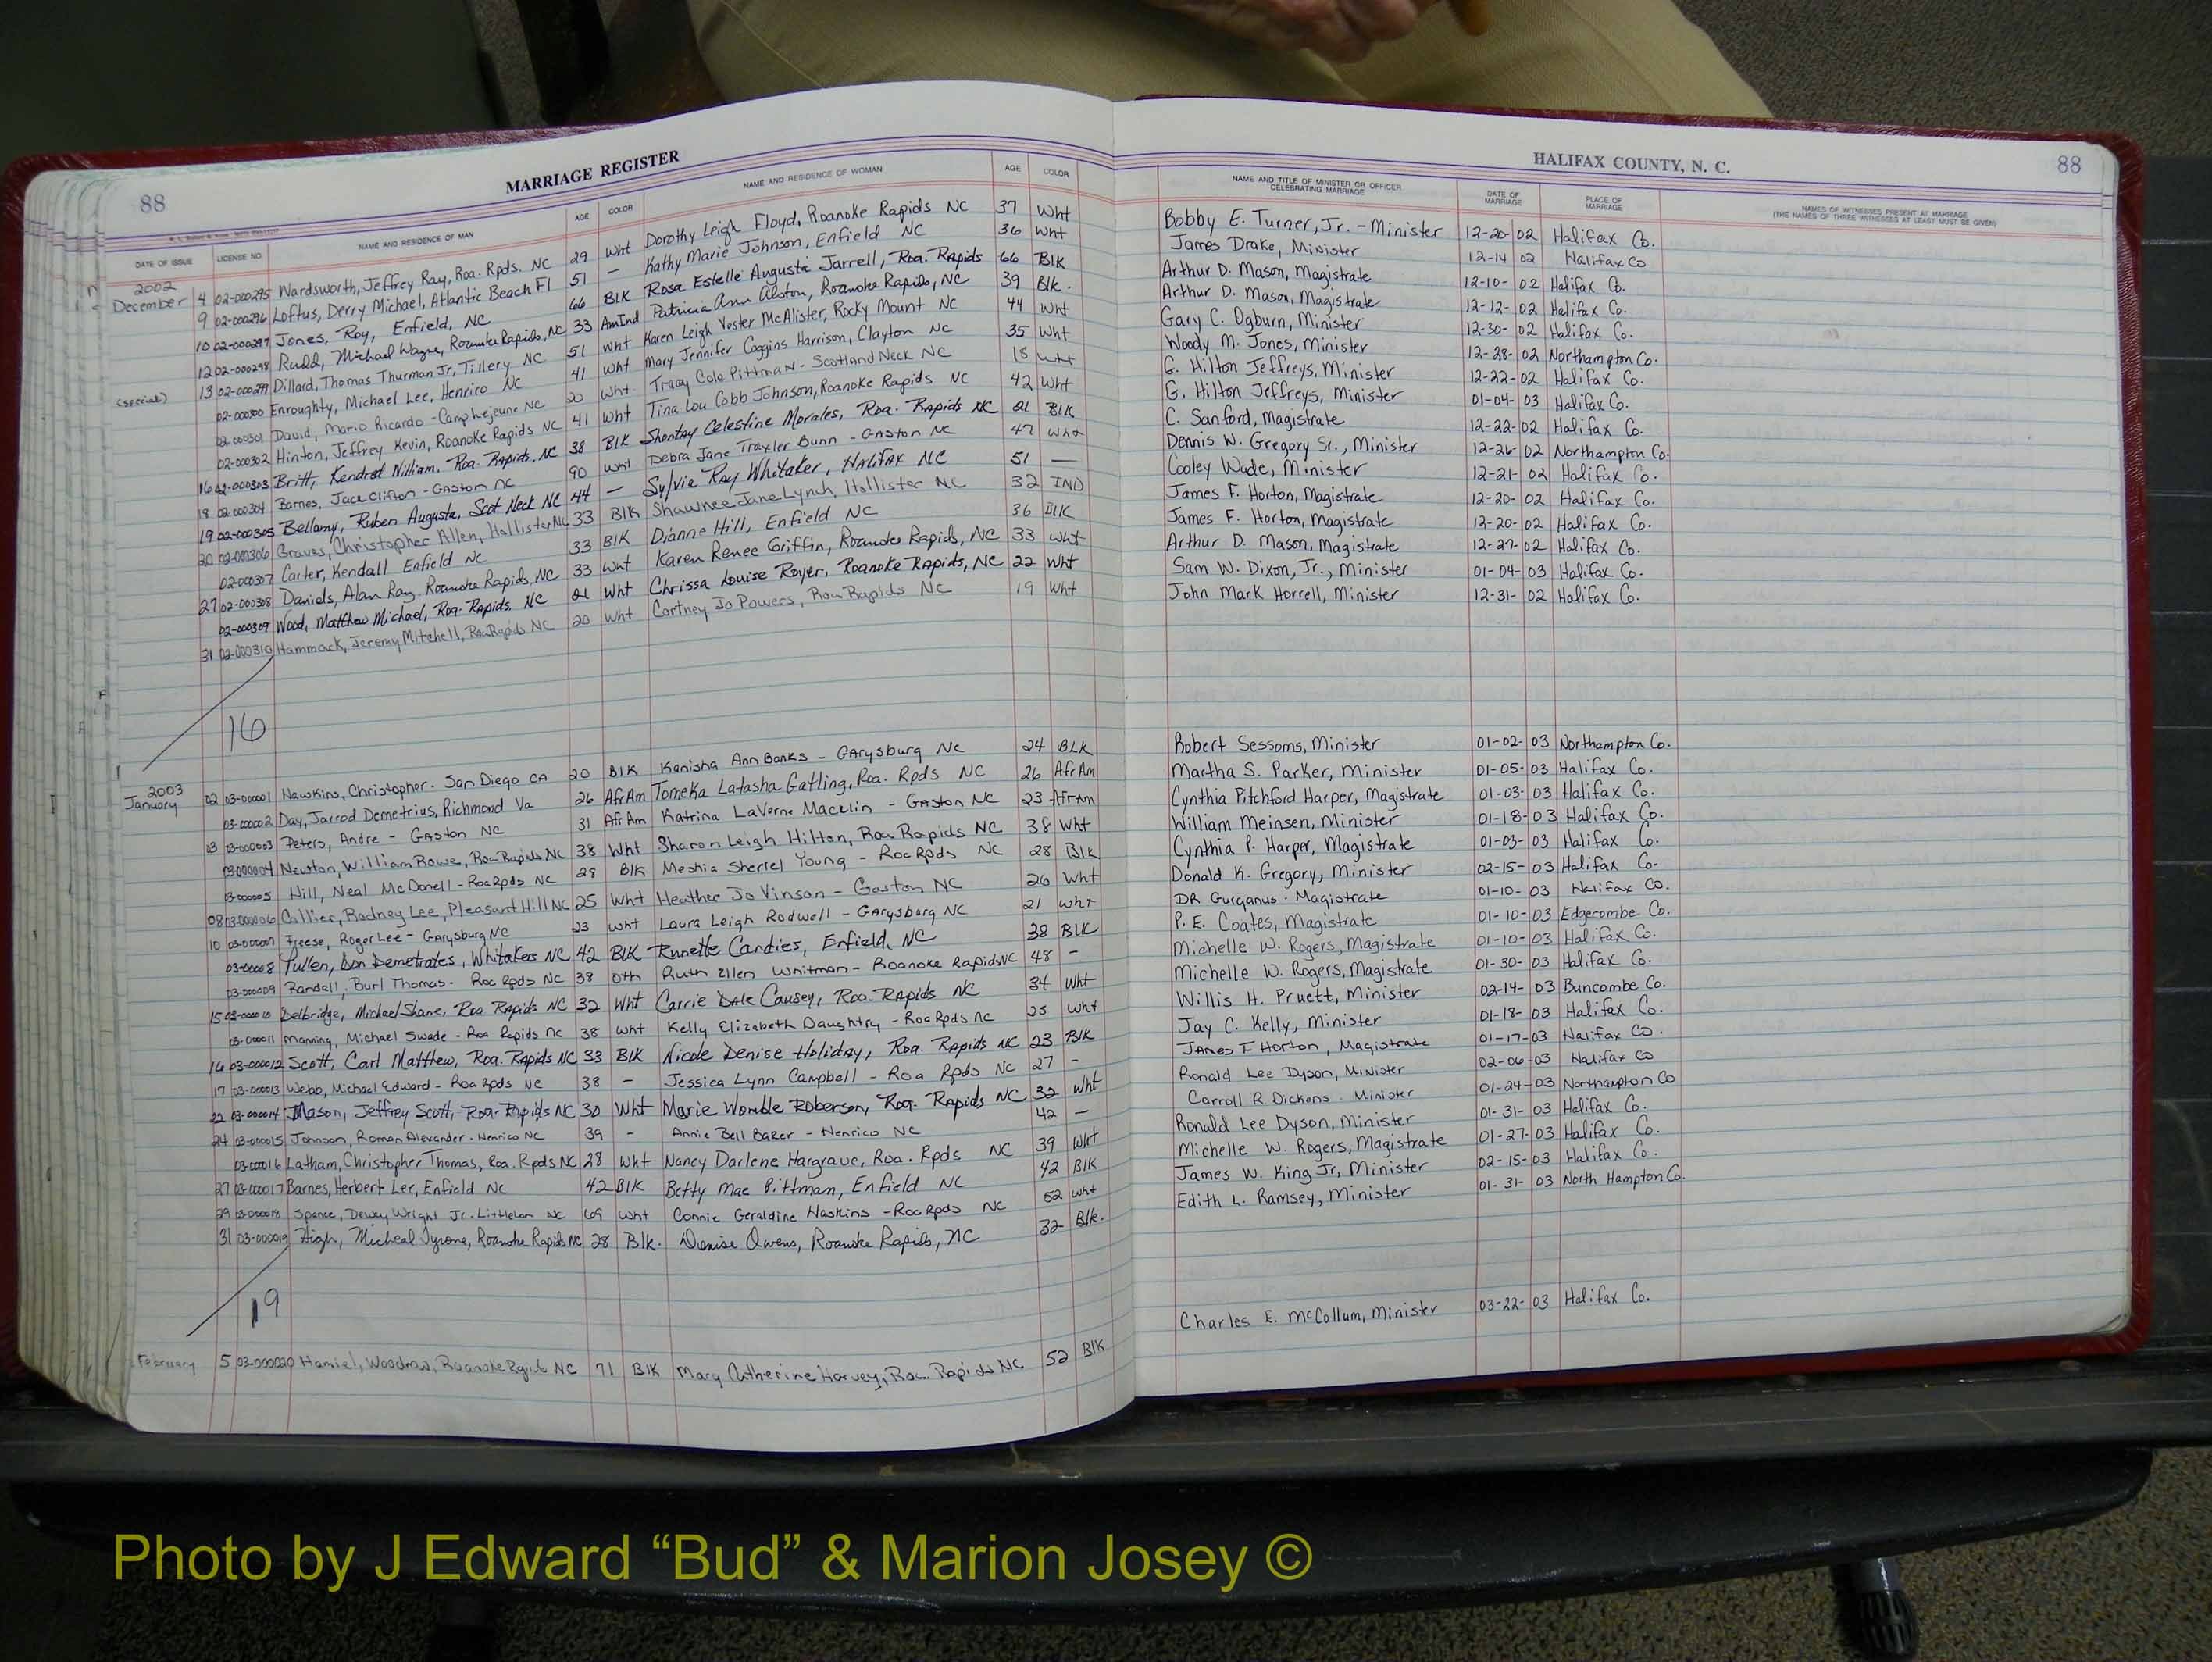 88
MARRIAGE REGISTER
HALIFAX COUNTY, N. C.
88
DATE OF ISSUE LICENSE NO. NAME AND RESIDENCE OF MAN AGE COLOR NAME AND RESIDENCE OF WOMAN AGE COLOR NAME AND TITLE OF MINISTER OR OFFICER CELEBRATING MARRIAGE DATE OF MARRIAGE PLACE OF MARRIAGE NAMES OF WITNESSES PRESENT AT MARRIAGE (THE NAMES OF THREE WITNESSES AT LEAST MUST BE GIVEN)
2002
December 4 02-000295 Wardsworth, Jeffrey Ray, Roa. Rpds. NC 29 Wht Dorothy Leigh Floyd, Roanoke Rapids NC 37 Wht Bobby E. Turner, Jr. - Minister 12-20-02 Halifax Co.
9 02-000296 Loftus, Derry Michael, Atlantic Beach Fl 51 - Kathy Marie Johnson, Enfield NC 36 Wht James Drake, Minister 12-14 02 Halifax Co
10 02-000297 Jones, Roy, Enfield, NC 66 BlK Rosa Estelle Augusta Jarrell, Roa. Rapids 66 BlK Arthur D. Mason, Magistrate 12-10-02 Halifax Co.
12 02-000298 Rudd, Michael Wayne, Roanoke Rapids, NC 33 AmInd Patricia Ann Alston, Roanoke Rapids, NC 39 Blk. Arthur D. Mason, Magistrate 12-12-02 Halifax Co.
13 02-000299 Dillard, Thomas Thurman Jr, Tillery NC 51 Wht Karen Leigh Vester McAlister, Rocky Mount NC 44 Wht Gary C. Ogburn, Minister 12-30-02 Halifax Co.
(special) 02-000300 Enroughty, Michael Lee, Henrico NC 41 Wht Mary Jennifer Coggins Harrison, Clayton NC 35 Wht Woody M. Jones, Minister 12-28-02 Northampton Co.
02-000301 David, Mario Ricardo - Camp Lejeune NC 20 Wht Tracy Cole Pittman - Scotland Neck NC 18 Wht G. Hilton Jeffreys, Minister 12-22-02 Halifax Co.
02-000302 Hinton, Jeffrey Kevin, Roanoke Rapids NC 41 Wht Tina Lou Cobb Johnson, Roanoke Rapids NC 42 Wht G. Hilton Jeffreys, Minister 01-04-03 Halifax Co.
16 02-000303 Britt, William, Roa. Rapids, NC 38 BlK Celestine Morales, Roa. Rapids NC 21 BlK C. Sanford, Magistrate 12-22-02 Halifax Co.
18 02-000304 Barnes, Jack Clifton - Gaston NC 90 Wht Debra Jane Traxler Bunn - Gaston NC 47 Wht Dennis W. Gregory Sr., Minister 12-26-02 Northampton Co.
19 02-000305 Bellamy, Ruben Augusta, Scot Neck NC 44 - Sylvia Ray Whitaker, Halifax NC 51 - Cooley Wade, Minister 12-21-02 Halifax Co.
20 02-000306 Graves, Christopher Allen, Hollister NC 33 Blk Shawnee Jane Lynch, Hollister NC 32 IND James F. Horton, Magistrate 12-20-02 Halifax Co.
02-000307 Carter, Kendall Enfield NC 33 BlK Dianne Hill, Enfield NC 36 BlK James F. Horton, Magistrate 12-20-02 Halifax Co.
27 02-000308 Daniels, Alan Ray, Roanoke Rapids, NC 33 Wht Karen Renee Griffin, Roanoke Rapids, NC 33 Wht Arthur D. Mason, Magistrate 12-27-02 Halifax Co.
02-000309 Wood, Matthew Michael, Roa. Rapids. NC 21 Wht Chrissa Louise Royer, Roanoke Rapids, NC 22 Wht Sam W. Dixon, Jr., Minister 01-04-03 Halifax Co.
31 02-000310 Hammack, Jeremy Mitchell, Roa Rapids NC 20 Wht Cortney Jo Powers, Roa Rapids NC 19 Wht John Mark Horrell, Minister 12-31-02 Halifax Co.
16
2003
January 02 03-000001 Hawkins, Christopher. San Diego CA 20 Blk Kanisha Ann Banks - Garysburg NC 24 BLK Robert Sessoms, Minister 01-02-03 Northampton Co.
03-000002 Day, Jarrod Demetrius, Richmond Va 26 AfrAm Tomeka Latasha Gatling, Roa. Rpds NC 26 AfrAm Martha S. Parker, Minister 01-05-03 Halifax Co.
03 03-000003 Peters, Andre - Gaston NC 31 AfrAm Katrina LaVerne Macklin - Gaston NC 23 AfrAm Cynthia Pitchford Harper, Magistrate 01-03-03 Halifax Co.
03-000004 Newton, William Rowe, Roa Rapids NC 38 Wht Sharon Leigh Hilton, Roa Rapids NC 38 Wht William Meinsen, Minister 01-18-03 Halifax Co.
03-000005 Hill, Neal McDonell - Roa Rpds NC 28 Blk Meshia Sherrel Young - Roa Rpds NC 28 Blk Cynthia P. Harper, Magistrate 01-03-03 Halifax Co.
08 03-000006 Collier, Rodney Lee, Pleasant Hill NC 25 Wht Heather Jo Vinson - Gaston NC 20 Wht Donald K. Gregory, Minister 02-15-03 Halifax Co.
10 03-000007 Freese, Roger Lee - Garysburg NC 23 Wht Laura Leigh Rodwell - Garysburg NC 21 Wht DR Gurganus. Magistrate 01-10-03 Halifax Co.
03-00008 Pullen, Don Demetrates, Whitakers NC 42 BLK Runette Candies, Enfield, NC 38 BLK P. E. Coates, Magistrate 01-10-03 Edgecombe Co.
03-000009 Randall, Burl Thomas. Roa Rpds NC 38 Oth Ruth Ellen Whitman - Roanoke Rapids NC 48 - Michelle W. Rogers, Magistrate 01-10-03 Halifax Co.
15 Delbridge, Michael Shane, Roa Rapids NC 32 Wht Carrie Dale Causey, Roa. Rapids NC 34 Wht Michelle W. Rogers, Magistrate 01-30-03 Halifax Co.
03-00011 Manning, Michael Swade - Roa Rapids NC 38 Wht Kelly Elizabeth Daughtry - Roa Rpds NC 25 Wht Willis H. Pruett, Minister 02-14-03 Buncombe Co.
16 03-000012 Scott, Carl Matthew, Roa. Rapids NC 33 Blk Nicole Denise Holiday, Roa. Rapids NC 23 Blk Jay C. Kelly, Minister 01-18-03 Halifax Co.
17 03-000013 Webb, Michael Edward - Roa Rpds NC 38 - Jessica Lynn Campbell - Roa Rpds NC 27 - James F Horton, Magistrate 01-17-03 Halifax Co.
22 03-00014 Mason, Jeffrey Scott, Roa. Rapids NC 30 Wht Marie Womble Roberson, Roa. Rapids NC 32 Wht Ronald Lee Dyson, Minister 02-06-03 Halifax Co
24 03-000015 Johnson, Roman Alexander. Henrico NC 39 - Annie Bell Baker - Henrico NC 42 - Carroll R Dickens. Minister 01-24-03 Northampton Co
03-00016 Latham, Christopher Thomas, Roa. Rpds NC 28 Wht Nancy Darlene Hargrave, Roa. Rpds NC 39 Wht Ronald Lee Dyson, Minister 01-31-03 Halifax Co.
27 03-000017 Barnes, Herbert Lee, Enfield NC 42 Blk Betty Mae Pittman, Enfield NC 42 Blk Michelle W. Rogers, Magistrate 01-27-03 Halifax Co.
29 03-000018 Spence, Dewey Wright Jr. Littleton NC 69 Wht Connie Geraldine Haskins - Roa Rpds NC 52 Wht James W. King Jr, Minister 02-15-03 Halifax Co.
31 03-000019 High, Micheal Tyrone, Roanoke Rapids NC 28 Blk. Denise Owens, Roanoke Rapids, NC 32 Blk. Edith L. Ramsey, Minister 01-31-03 North Hampton Co.
19
February 5 03-000020 Hamiel, Woodrow, Roanoke Rapids NC 71 Blk Mary Catherine Harvey, Roa. Rapids NC 52 Blk Charles E. McCollum, Minister 03-22-03 Halifax Co.
Photo by J Edward “Bud” & Marion Josey ©